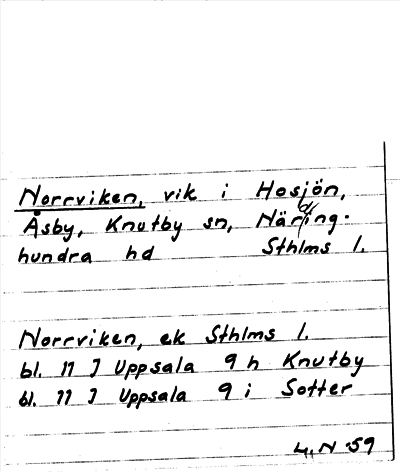 Norrviken, vik i Hosjön,
Åsby, Knutby sn, Närding-
hundra hd Sthlms l.
Norrviken, ek Sthlms l.
bl. 11 J Uppsala 9 h Knutby
bl. 11 J Uppsala 9 i Sotter
L.N -59